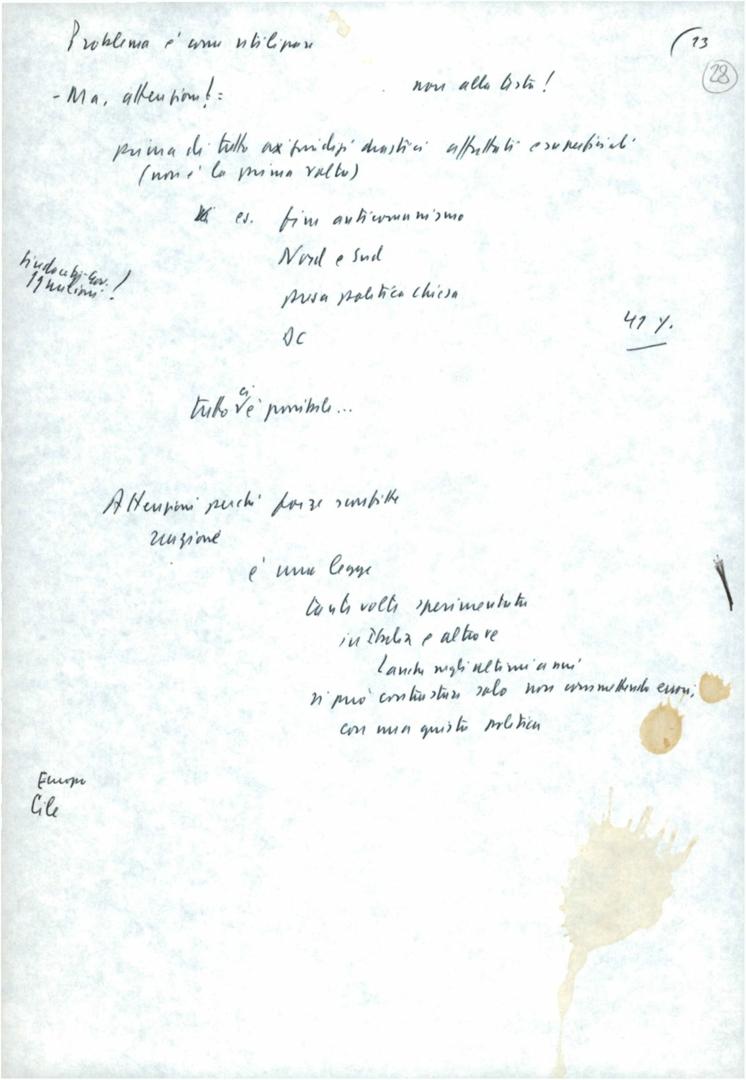 Problema è come utilizzare
13
28
- Ma, attenzione! =
non alla testa!
prima di tutto ai giudizi drastici affrettati e superficiali
(non è la prima volta)
es. fine anticomunismo
Nord e Sud
presa politica chiesa
DC
11 milioni!
41 %.
tutto ci è possibile...
Attenzione perché forze sconfitte
reazione
è una legge
tante volte sperimentata
in Italia e altrove
(anche negli ultimi anni
si può contrastare solo non commettendo errori,
con una giusta politica
Europa
Cile